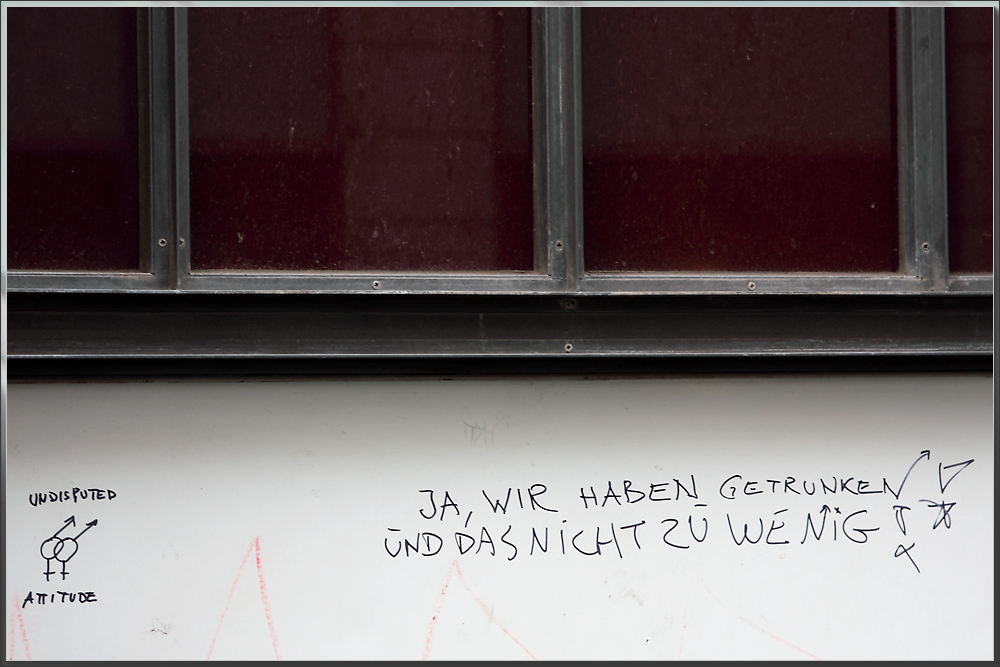 UNDISPUTED
ATTITUDE
JA, WIR HABEN GETRUNKEN
UND DAS NICHT ZU WENIG